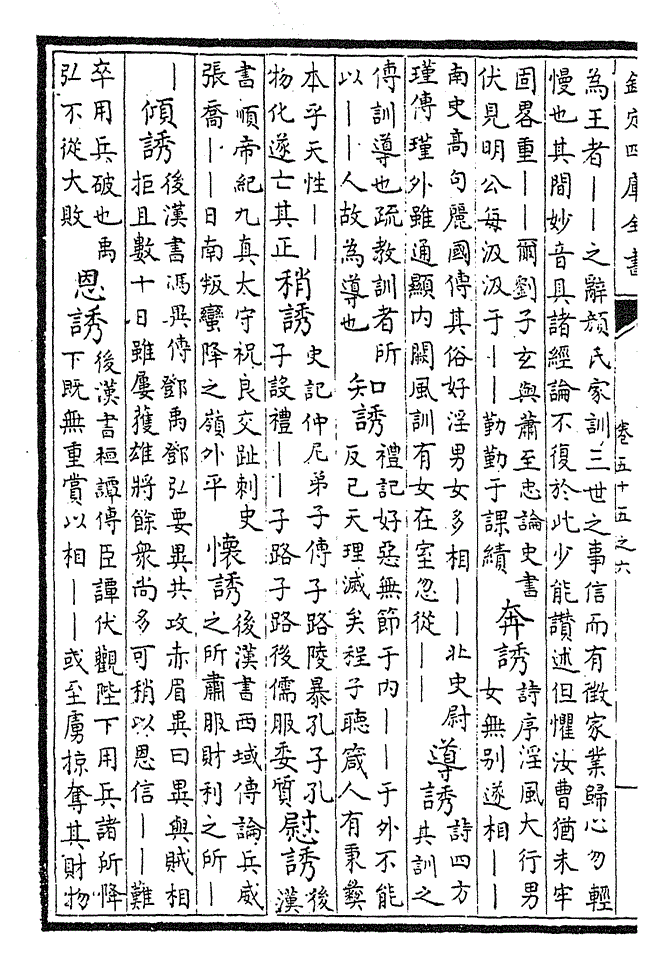 欽定四庫全書
卷五十五之六
為王者——之辭顔氏家訓三世之事信而有徵家業歸心勿輕
慢也其間妙音具諸經論不復於此少能讚述但懼汝曹猶未牢
固畧重——爾劉子玄與蕭至忠論史書
伏見明公每汲汲于——勤勤于課績
奔誘
詩序淫風大行男
女無別遂相——
南史高句麗國傳其俗好淫男女多相——北史尉
瑾傳瑾外雖通顯内闕風訓有女在室忽從——
導誘
詩四方
其訓之
傳訓導也疏教訓者所
以——人故為導也
知誘
禮記好惡無節于内——于外不能
反已天理滅矣程子聽箴人有秉彝
本乎天性——
物化遂亡其正
稍誘
史記仲尼弟子傳子路陵暴孔子孔
子設禮——子路子路後儒服委質
慰誘
後
漢
書順帝紀九真太守祝良交趾刺史
張喬——日南叛蠻降之嶺外平
懷誘
後漢書西域傳論兵威
之所肅服財利之所—
—
傾誘
後漢書馮異傳鄧禹鄧弘要異共攻赤眉異曰異與賊相
拒且數十日雖屢獲雄將餘衆尚多可稍以恩信——難
卒用兵破也禹
弘不從大敗
恩誘
後漢書桓譚傳臣譚伏觀陛下用兵諸所降
下既無重賞以相——或至虜掠奪其財物